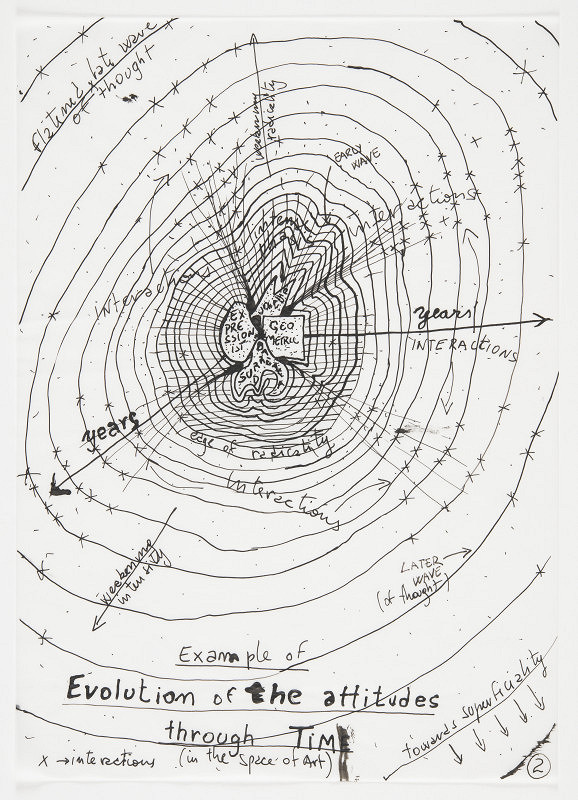 late wave
of thought
weakening
radicality
EARLY
WAVE
interactions
interaction
intense
EX
PRE
SSION
IST
GEO
METRIC
SURREAL
years
INTERACTIONS
years
edge of radicality
interactions
weakening
intensity
LATER
WAVE
(of thought)
Example of
Evolution of the attitudes
through TIME
x → interactions (in the space of Art)
towards superficiality
2